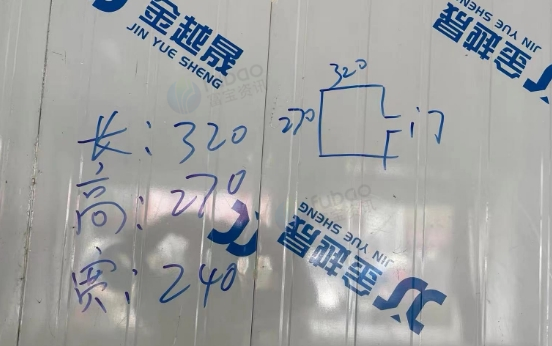 金越晟
JIN YUE SHENG
金越晟
JIN YUE SHENG
320
270
门
长：320
高：270
宽：240
金越晟
JIN YUE SHENG